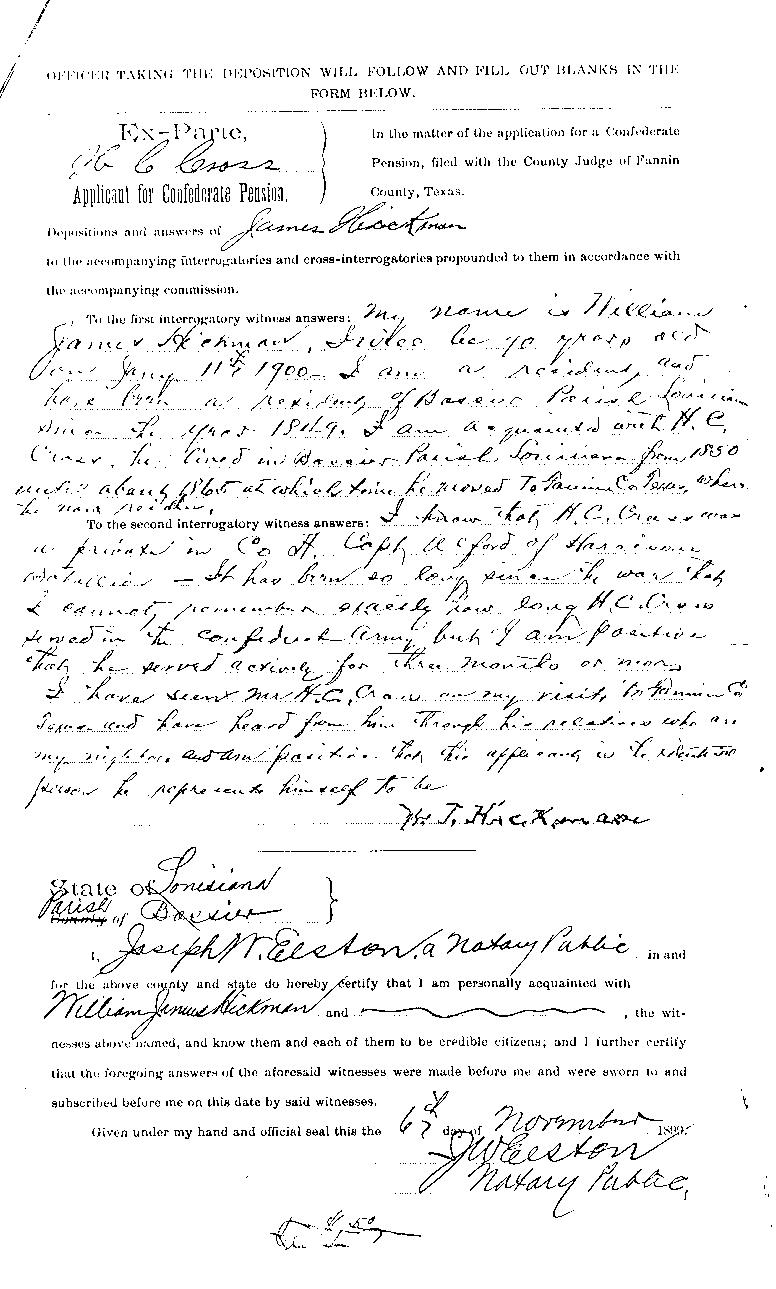 OFFICER TAKING THE DEPOSITION WILL FOLLOW AND FILL OUT BLANKS IN THE
FORM BELOW.
Ex-Parte,
H C Cross
Applicant for Confederate Pension.
In the matter of the application for a Confederate
Pension, filed with the County Judge of Fannin
County, Texas.
Depositions and answers of James Hickman
to the accompanying interrogatories and cross-interrogatories propounded to them in accordance with
the accompanying commission.
To the first interrogatory witness answers: My name is William
James Hickman, I will be 70 years old
on Jany 11th 1900. I am a resident, and
have been a resident of Bossier Parish Louisiana
since the year 1849. I am acquainted with H. C.
Cross, he lived in Bossier Parish Louisiana from 1850
until about 1865 at which time he moved to Fannin Co Texas, where
he now resides.
To the second interrogatory witness answers: I know that H. C. Cross was
a private in Co H. Capt Alford of Harrison
Batallion – It has been so long since the war that
I cannot remember exactly how long H. C. Cross
served in the confederate Army but I am positive
that he served actively for three months or more
I have seen Mr H. C. Cross on my visits to Fannin Co
Texas and have heard from him through his relatives who are
my neighbors and am positive that this applicant is the identical
person he represents himself to be
Wm J. Hickman
State of Louisiana
Parish County of Bossier
I, Joseph W. Elston, a Notary Public in and
for the above county and state do hereby certify that I am personally acquainted with
William James Hickman and , the wit-
nesses above named, and know them and each of them to be credible citizens; and I further certify
that the foregoing answers of the aforesaid witnesses were made before me and were sworn to and
subscribed before me on this date by said witnesses.
Given under my hand and official seal this the 6th day of November 1899.
J W Elston
Notary Public,